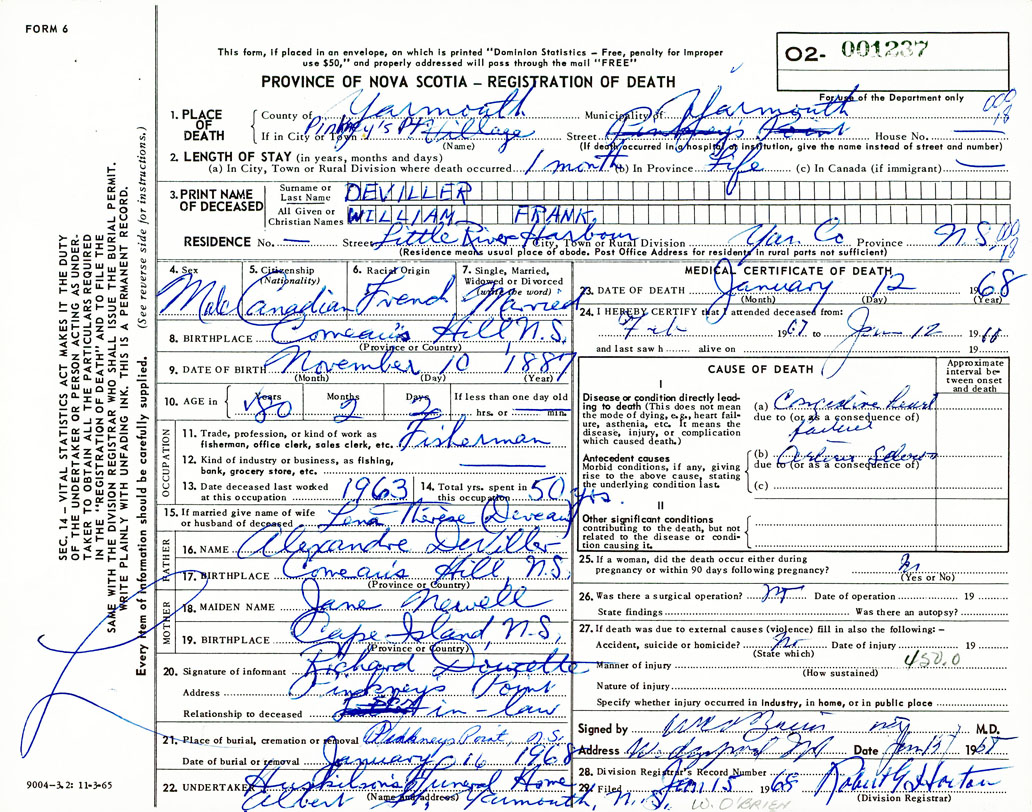 FORM 6
This form, if placed in an envelope, on which is printed "Dominion Statistics – Free, penalty for improper
use $50," and properly addressed will pass through the mail "FREE"
02- 001237
For use of the Department only
PROVINCE OF NOVA SCOTIA – REGISTRATION OF DEATH
1. PLACE OF DEATH
County of Yarmouth Municipality of Yarmouth
If in City or Town Pinkney's Pt Village Street Pinkney's Point House No.
(Name) (If death occurred in a hospital or institution, give the name instead of street and number)
2. LENGTH OF STAY (in years, months and days)
(a) In City, Town or Rural Division where death occurred 1 month (b) In Province Life (c) In Canada (if immigrant)
3. PRINT NAME OF DECEASED
Surname or Last Name DEVILLER
All Given or Christian Names WILLIAM FRANK
RESIDENCE No. — Street Little River Harbour City, Town or Rural Division Yar. Co Province N.S.
(Residence means usual place of abode. Post Office Address for residents in rural parts not sufficient)
4. Sex Male
5. Citizenship (Nationality) Canadian
6. Racial Origin French
7. Single, Married, Widowed or Divorced (write the word) Married
8. BIRTHPLACE Comeau's Hill N.S.
(Province or Country)
9. DATE OF BIRTH November 10 1887
(Month) (Day) (Year)
10. AGE in Years 80 Months 2 Days 2 If less than one day old hrs. or min.
OCCUPATION
11. Trade, profession, or kind of work as fisherman, office clerk, sales clerk, etc. Fisherman
12. Kind of industry or business, as fishing, bank, grocery store, etc.
13. Date deceased last worked at this occupation 1963
14. Total yrs. spent in this occupation 50 yrs.
15. If married give name of wife or husband of deceased Lena Thérèse (Deveau)
FATHER
16. NAME Alexandre DeViller
17. BIRTHPLACE Comeau's Hill, N.S.
(Province or Country)
MOTHER
18. MAIDEN NAME Jane Newell
19. BIRTHPLACE Cape Island, N.S.
(Province or Country)
20. Signature of informant Richard Doucette
Address Pinkney's Point
Relationship to deceased in-law
21. Place of burial, cremation or removal Pinkneys Point, N.S.
Date of burial or removal January 16 1968
22. UNDERTAKER Huskilson's Funeral Home
(Name and address) Albert Yarmouth, N.S.
MEDICAL CERTIFICATE OF DEATH
23. DATE OF DEATH January 12 1968
(Month) (Day) (Year)
24. I HEREBY CERTIFY that I attended deceased from:
Feb 1967 to Jan 12 1968
and last saw h alive on 19
CAUSE OF DEATH
Approximate interval between onset and death
I
Disease or condition directly leading to death (This does not mean the mode of dying, e.g., heart failure, asthenia, etc. It means the disease, injury, or complication which caused death.)
(a) Congestive heart failure
due to (or as a consequence of)
Antecedent causes
Morbid conditions, if any, giving rise to the above cause, stating the underlying condition last.
(b)
due to (or as a consequence of)
(c)
II
Other significant conditions
contributing to the death, but not related to the disease or condition causing it.
25. If a woman, did the death occur either during pregnancy or within 90 days following pregnancy?
(Yes or No)
26. Was there a surgical operation? no Date of operation 19
State findings Was there an autopsy?
27. If death was due to external causes (violence) fill in also the following: –
Accident, suicide or homicide? no Date of injury 19
(State which)
450.0
Manner of injury
(How sustained)
Nature of injury
Specify whether injury occurred in Industry, in home, or in public place
Signed by M.D.
Address Date Jan 15 1968
28. Division Registrar's Record Number
29. Filed Jan 15 1968 Robert G. Horton
(Division Registrar)
W. O'BRIEN
SEC. 14 – VITAL STATISTICS ACT MAKES IT THE DUTY
OF THE UNDERTAKER OR PERSON ACTING AS UNDER-
TAKER TO OBTAIN ALL THE PARTICULARS REQUIRED
IN THE "REGISTRATION OF DEATH" AND TO FILE THE
SAME WITH THE DIVISION REGISTRAR WHO SHALL ISSUE THE BURIAL PERMIT.
WRITE PLAINLY WITH UNFADING INK. THIS IS A PERMANENT RECORD.
Every item of information should be carefully supplied. (See reverse side for instructions.)
9004-3.2: 11-3-65